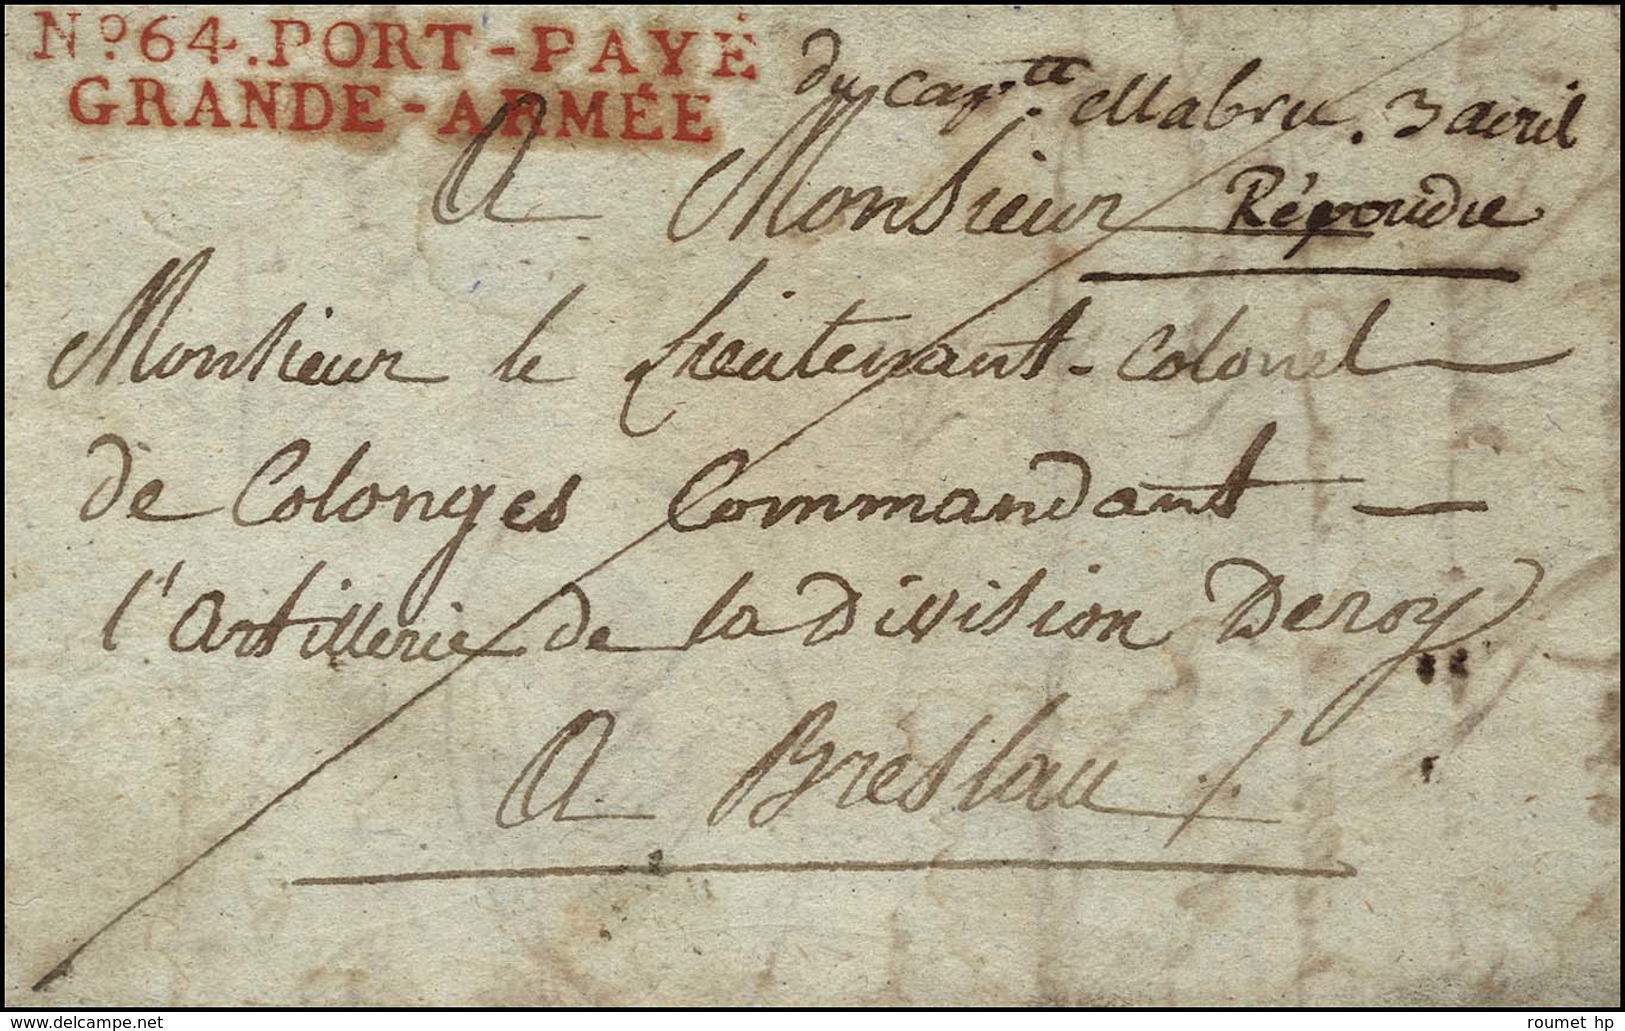 Nº 64. PORT-PAYÉ
GRANDE-ARMÉE
du cap.tte Mabru. 3 avril
A Monsieur
Répondre
Monsieur le Lieutenant-Colonel
de Colonges Commandant
l'Artillerie de la Division Deroy
A Breslau
delcampe.net
roumet hp